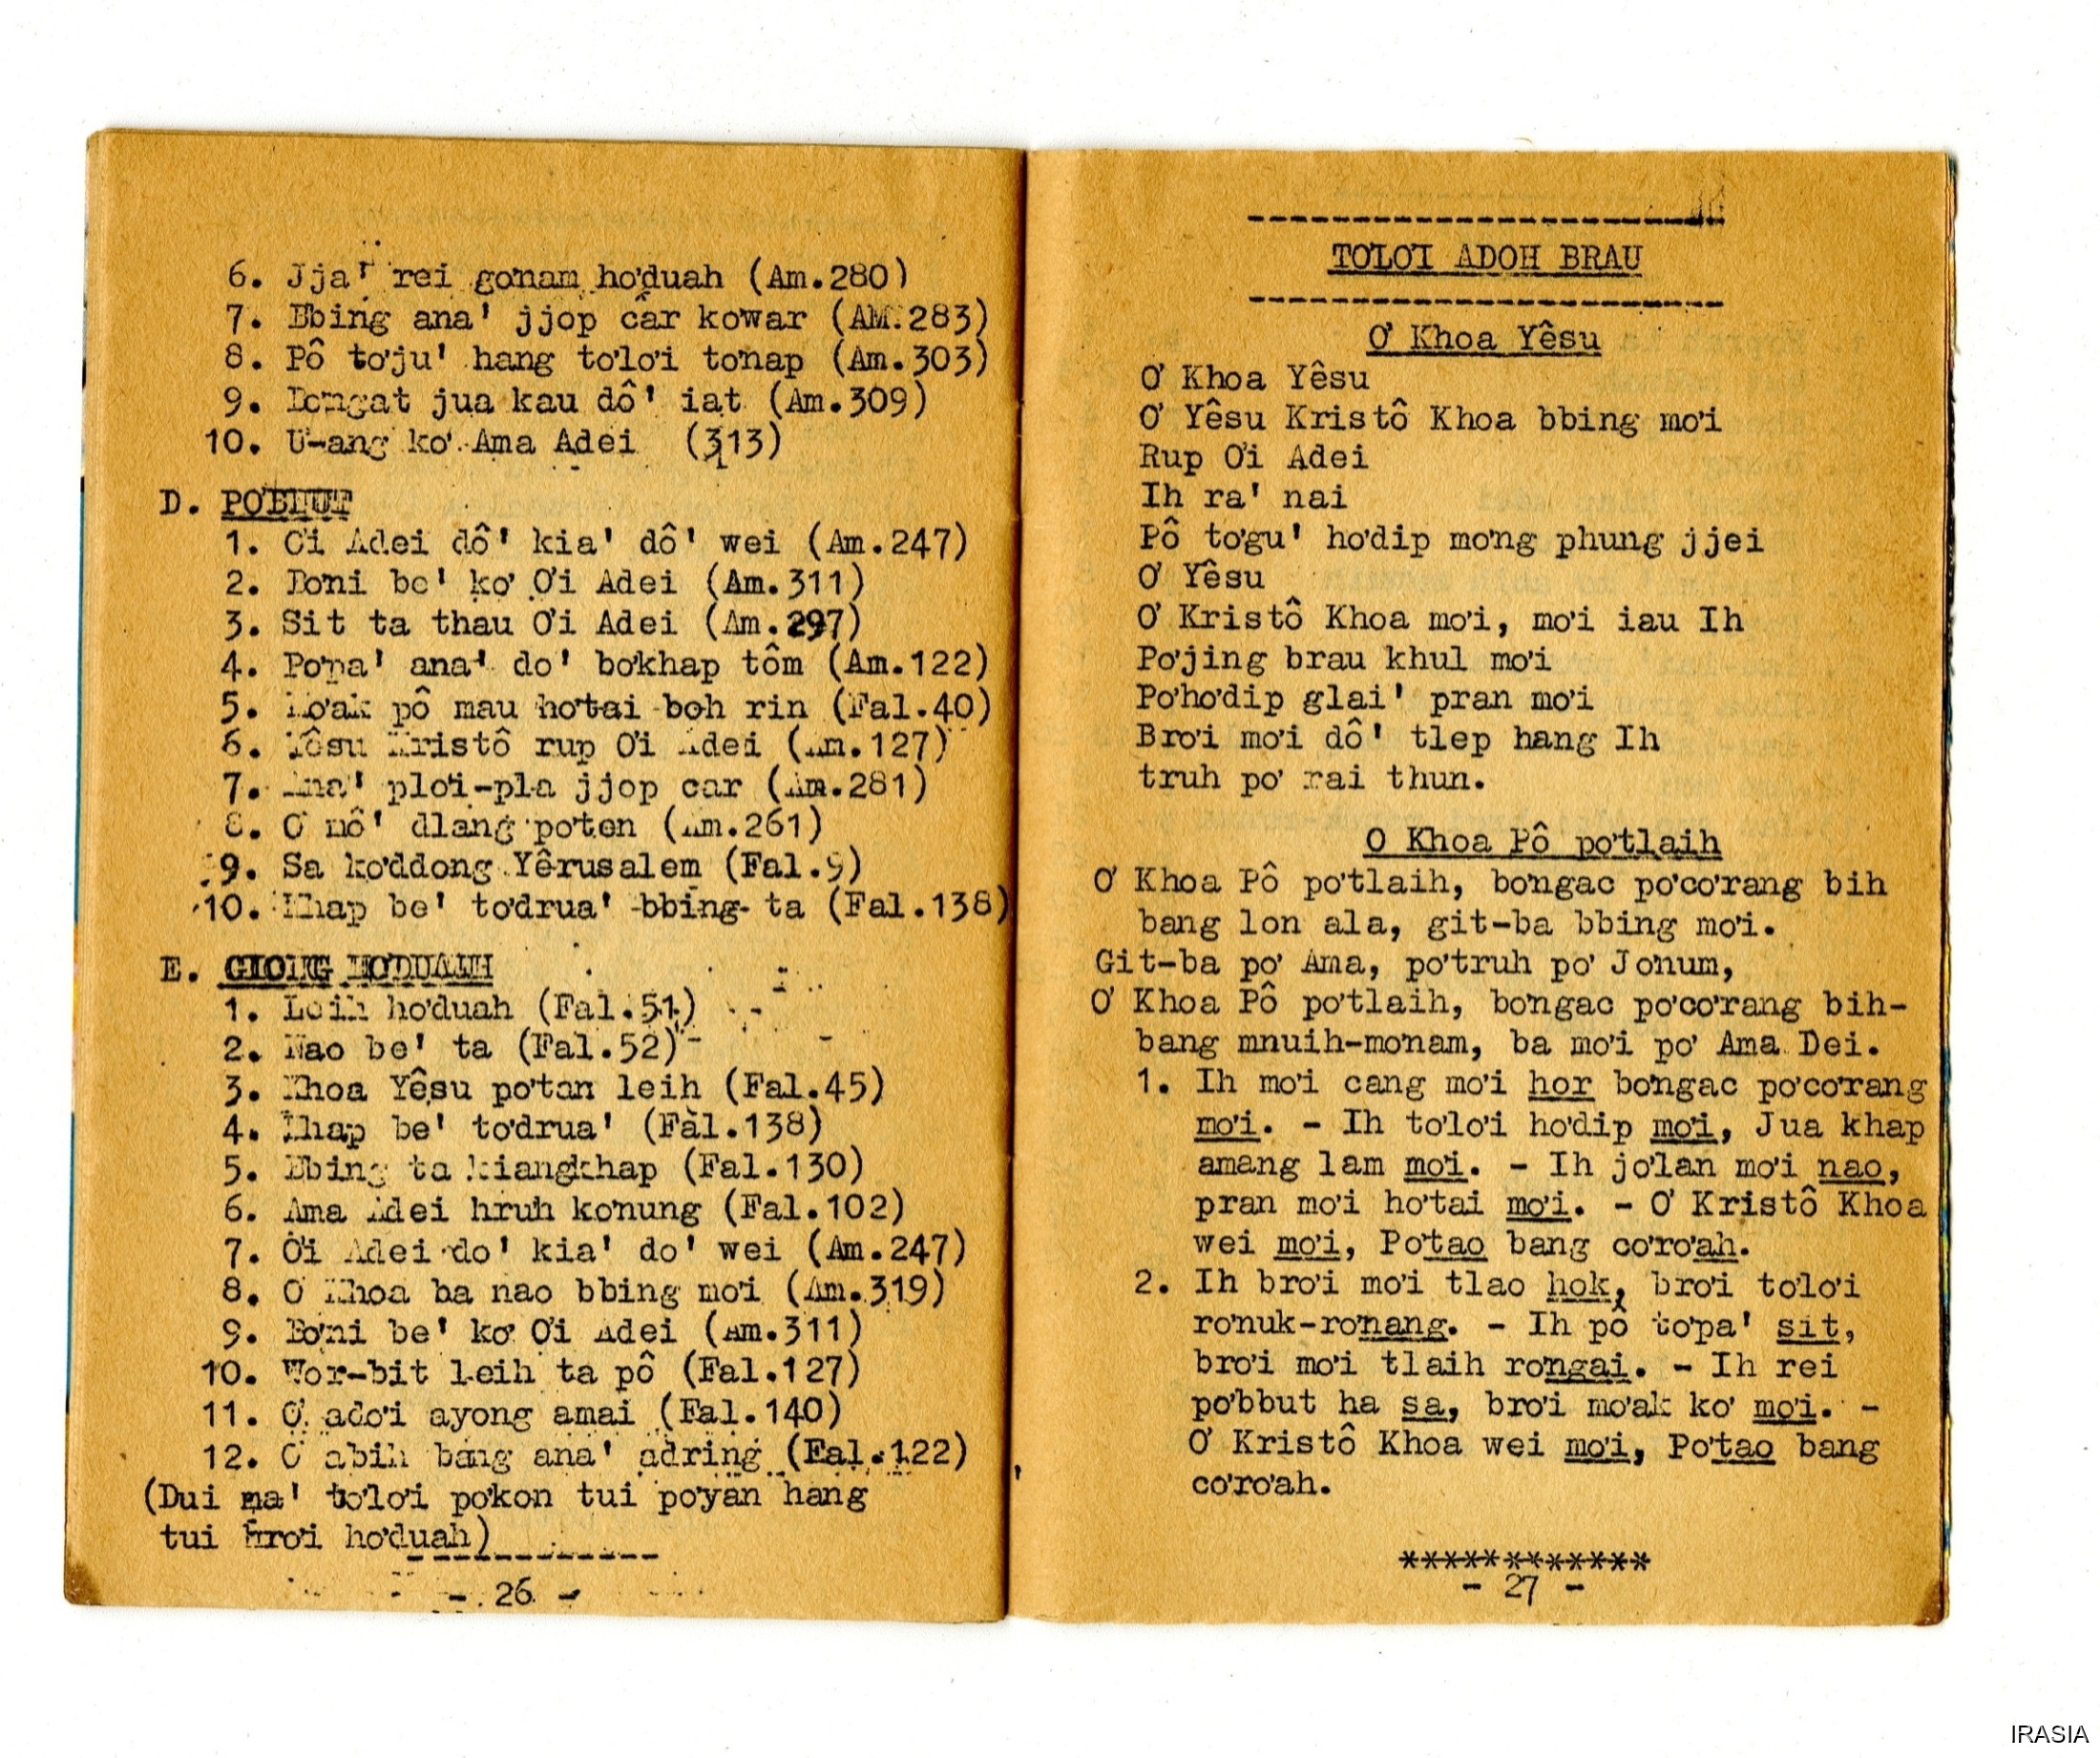 6. Jja' rei gơnam hơduah (Am.280)
7. Bbing ana' jjop câr kơwar (AM.283)
8. Pô tơju' hang tơlơi tơnap (Am.303)
9. Dongat jua kau dô' iat (Am.309)
10. U-ang kơ Ama Adei (313)
D. PƠBHUT
1. Ơi Adei dô' kia' dô' wei (Am.247)
2. Bơni be' kơ Ơi Adei (Am.311)
3. Sit ta thau Ơi Adei (Am.297)
4. Pơpa' ana' dơ' bơkhap tôm (Am.122)
5. Mơak pô mau hơtai boh rin (Fal.40)
6. Yêsu Kristô rup Ơi Adei (Am.127)
7. Ana' plơi-pla jjop car (Am.281)
8. Ơ mô' dlang pơten (Am.261)
9. Sa kơddong Yêrusalem (Fal.9)
10. Khap be' tơdrua' bbing ta (Fal.138)
E. GIONG HƠDUAIH
1. Leih hơduah (Fal.51)
2. Nao be' ta (Fal.52)
3. Khoa Yêsu pơtan leih (Fal.45)
4. Khap be' tơdrua' (Fal.138)
5. Bbing ta kiangkhap (Fal.130)
6. Ama Adei hruh kơnung (Fal.102)
7. Ơi Adei dơ' kia' dơ' wei (Am.247)
8. Ơ Khoa ba nao bbing mơi (Am.319)
9. Bơni be' kơ Ơi Adei (Am.311)
10. Wor-bit leih ta pô (Fal.127)
11. Ơ adơi ayong amai (Fal.140)
12. Ơ abih bang ana' adring (Fal.122)
(Dui ma' tơlơi pơkon tui pơyan hang
tui brơi hơduah)
- 26 -
TƠLƠI ADOH BRAU
Ơ Khoa Yêsu
Ơ Khoa Yêsu
Ơ Yêsu Kristô Khoa bbing mơi
Rup Ơi Adei
Ih ra' nai
Pô tơgu' hơdip mơng phung jjei
Ơ Yêsu
Ơ Kristô Khoa mơi, mơi iau Ih
Pơjing brau khul mơi
Pơhơdip glai' pran mơi
Brơi mơi dô' tlep hang Ih
truh pơ rai thun.
O Khoa Pô pơtlaih
Ơ Khoa Pô pơtlaih, bơngac pơcơrang bih
bang lon ala, git-ba bbing mơi.
Git-ba pơ Ama, pơtruh pơ Jơnum,
Ơ Khoa Pô pơtlaih, bơngac pơcơrang bih-
bang mnuih-mơnam, ba mơi pơ Ama Dei.
1. Ih mơi cang mơi hor bơngac pơcơrang
mơi. - Ih tơlơi hơdip mơi, Jua khap
amang lam mơi. - Ih jơlan mơi nao,
pran mơi hơtai mơi. - Ơ Kristô Khoa
wei mơi, Pơtao bang cơrơah.
2. Ih brơi mơi tlao hok, brơi tơlơi
rơnuk-rơnang. - Ih pô tơpa' sit,
brơi mơi tlaih rơngai. - Ih rei
pơbbut ha sa, brơi mơak kơ mơi. -
Ơ Kristô Khoa wei mơi, Pơtao bang
cơrơah.
************
- 27 -
IRASIA